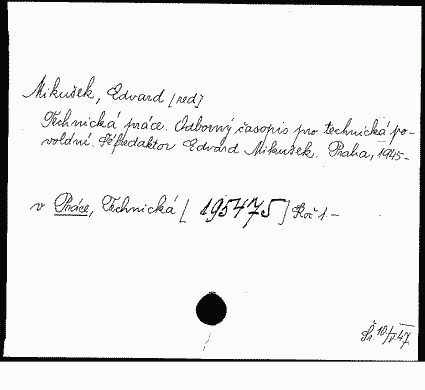 Mikušek, Edvard [red]
Technická práce. Odborný časopis pro technická po-
volání. Šéfredaktor Edvard Mikušek. Praha, 1945-
v Práce, Technická [195475] Roč 1-